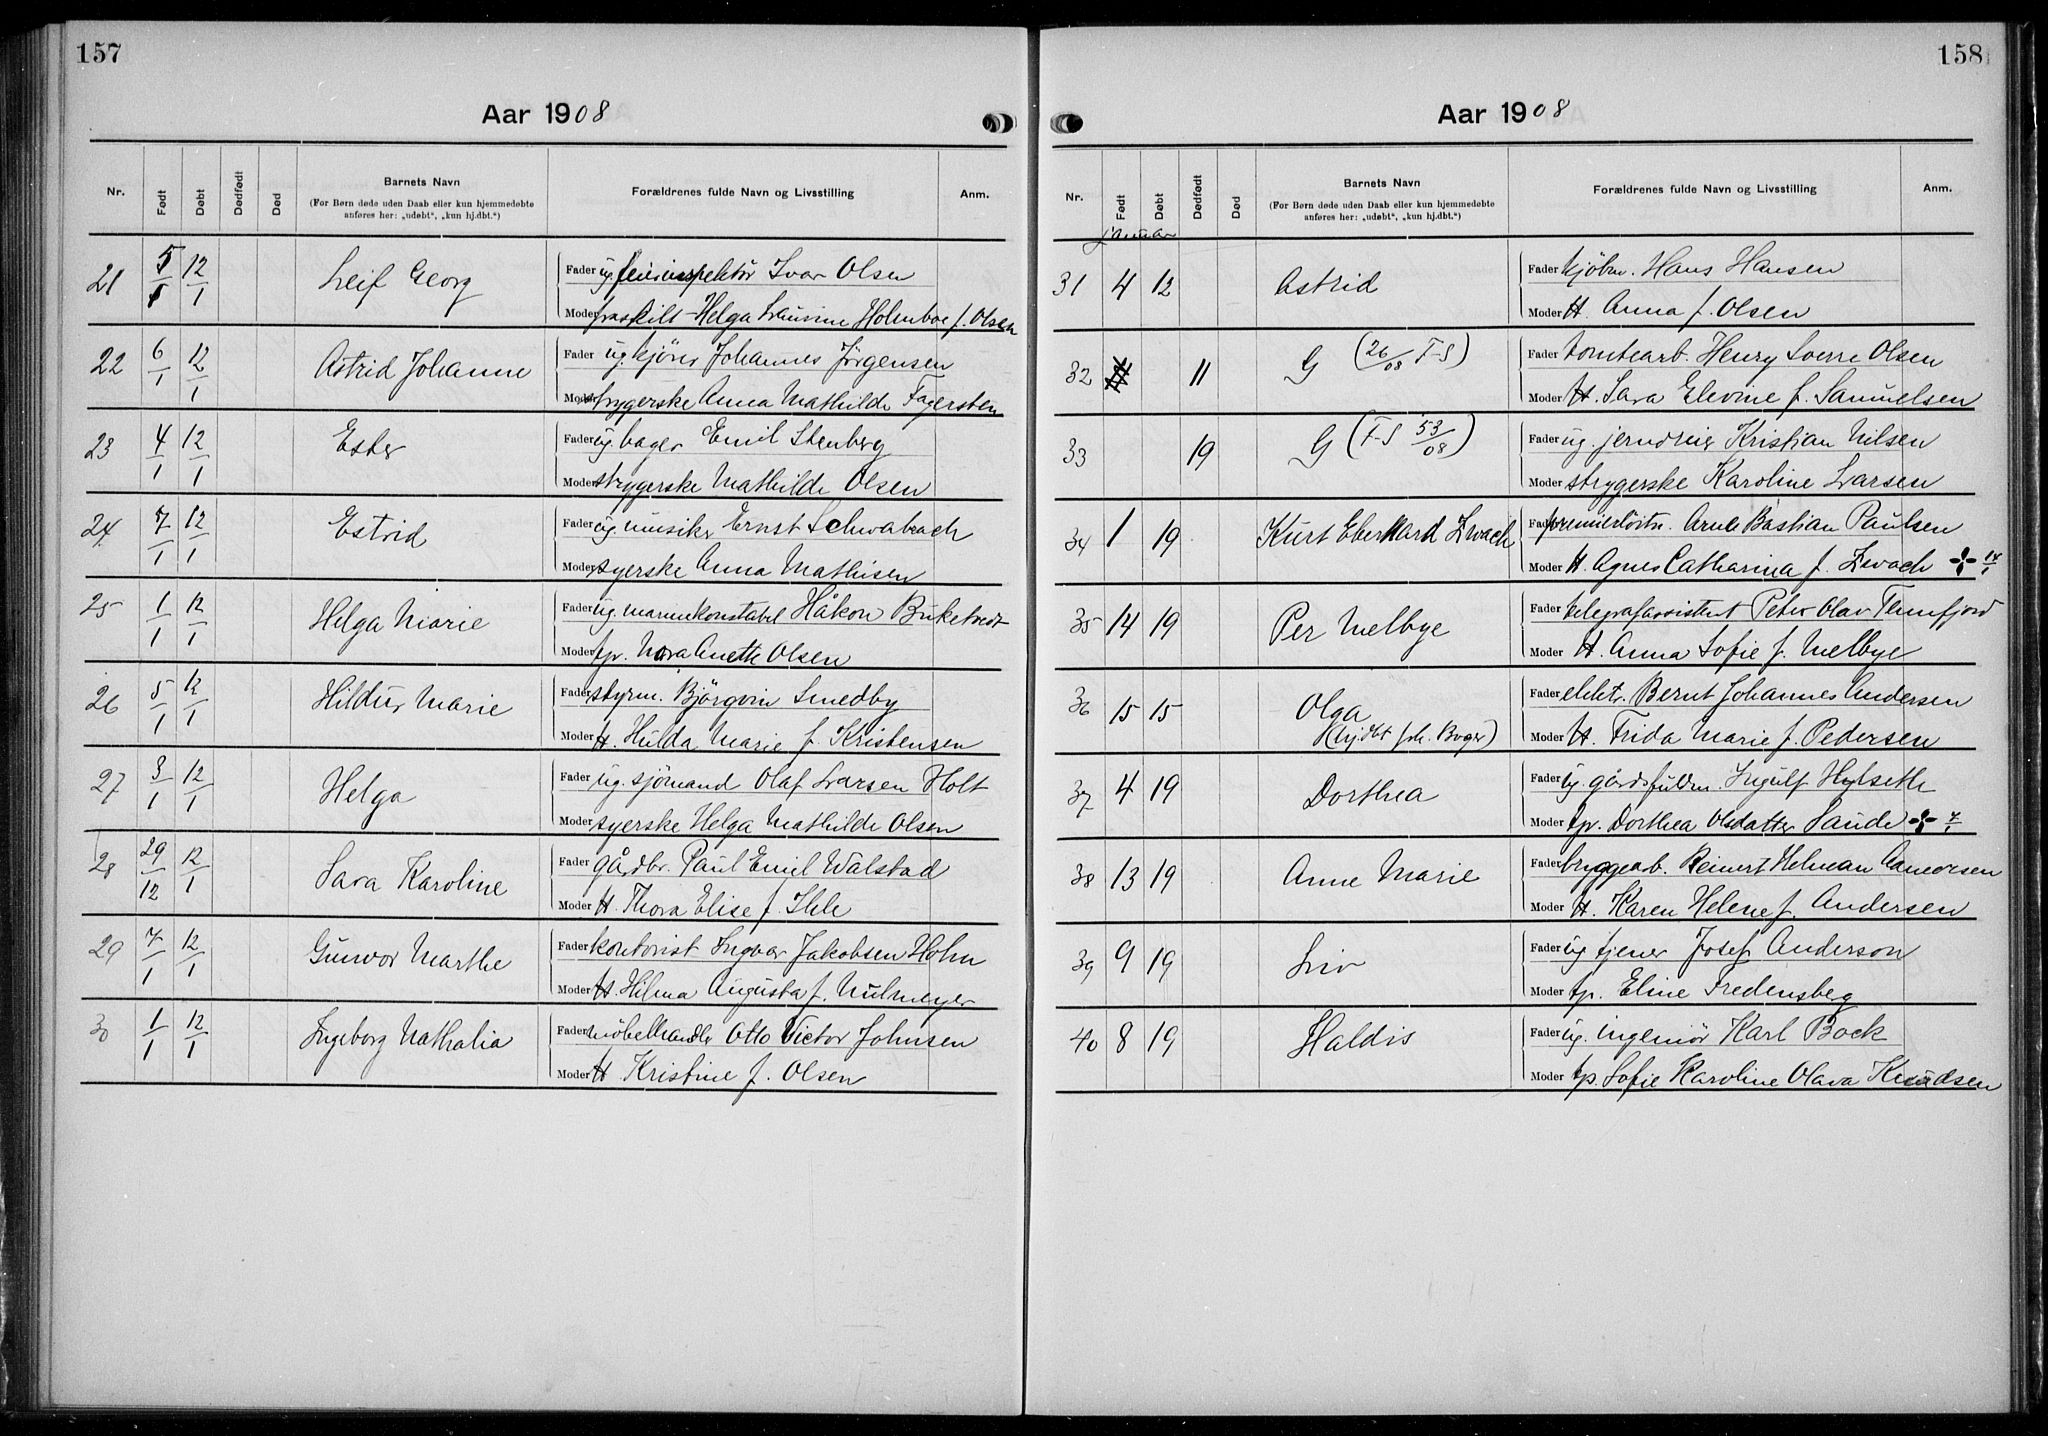 157
Aar 1908
Nr. Født Døbt Dødfødt Død Barnets Navn Forældrenes fulde Navn og Livsstilling Anm.
(For Børn døde uden Daab eller kun hjemmedøbte
anføres her: „udøbt“, „kun hj.dbt.“)
21 5/1 12/1 Leif Georg Fader ug. Ivar Olsen
Moder fraskilt Helga Laurine Holmboe f. Olsen
22 6/1 12/1 Astrid Johanne Fader ug. kjører Johannes Jørgensen
Moder strygerske Anna Mathilde Fagersten
23 4/1 12/1 Ester Fader ug. bager Emil Stenberg
Moder strygerske Mathilde Olsen
24 7/1 12/1 Estrid Fader ug. musiker Ernst Schwabach
Moder syerske Anna Mathisen
25 1/1 12/1 Helga Marie Fader ug. marinekonstabel Håkon Buketvedt
Moder tp. Nora Anette Olsen
26 5/1 12/1 Hildur Marie Fader styrm. Bjørgvin Smedby
Moder H. Hulda Marie f. Kristensen
27 3/1 12/1 Helga Fader ug. sjømand Olaf Larsen Holt
Moder syerske Helga Mathilde Olsen
28 29/12 12/1 Sara Karoline Fader gårdbr. Paul Emil Walstad
Moder H. Thora Elise f. Ihle
29 7/1 12/1 Gunvor Marthe Fader kontorist Ingvar Jakobsen Holm
Moder H. Hilma Augusta f. Mulmeyer
30 1/1 12/1 Ingeborg Nathalia Fader møbelhandler Otto Victor Johnsen
Moder H Kristine f. Olsen
158
Aar 1908
Nr. Født Døbt Dødfødt Død Barnets Navn Forældrenes fulde Navn og Livsstilling Anm.
(For Børn døde uden Daab eller kun hjemmedøbte
anføres her: „udøbt“, „kun hj.dbt.“)
Januar
31 4 12 Astrid Fader kjøbm. Hans Hansen
Moder H. Anna f. Olsen
32 11 G (26/08 F-S) Fader tomtearb. Henry Sverre Olsen
Moder H. Sara Elevine f. Samuelsen
33 19 G (F-S 53/08) Fader ug. jerndreier Kristian Nilsen
Moder strygerske Karoline Larsen
34 1 19 Kurt Eberhard Zwach Fader premierløitn. Arne Bastian Paulsen
Moder H. Agnes Catharina f. Zwach
35 14 19 Per Melbye Fader telegrafassistent Peter Olav Tennfjord
Moder H. Anna Sofie f. Melbye
36 15 15 Olga Fader elektr. Bernt Johannes Andersen
(hj.dbt Joh. Boger) Moder H. Frida Marie f. Pedersen
37 4 19 Dorthea Fader ug gårdsfuldm. Ingulf Hylseth
Moder tp. Dorthea Olsdatter Sande 7/1
38 13 19 Anne Marie Fader bryggearb. Reinert Helman
Moder H. Karen Helene f. Andersen
39 9 19 Liv Fader ug tjener Josef Anderson
Moder tp. Eline Fredensberg
40 8 19 Haldis Fader ug. ingeniør Karl Bock
Moder tp. Sofie Karoline Olava Knudsen